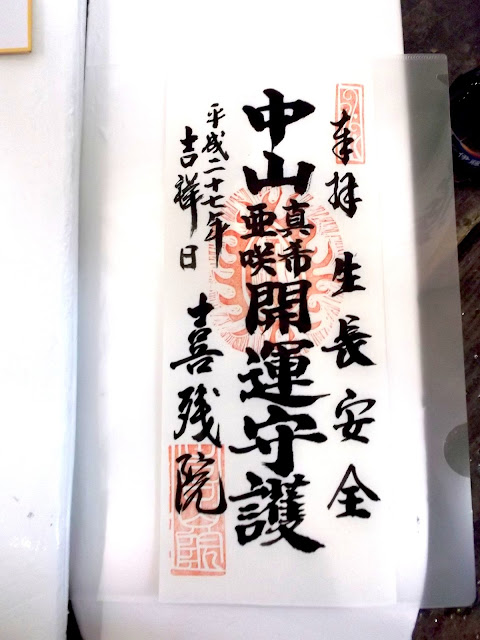 奉拝 生長安全
中山 真希 亜咲 開運守護
平成二十七年
吉祥日
喜残院